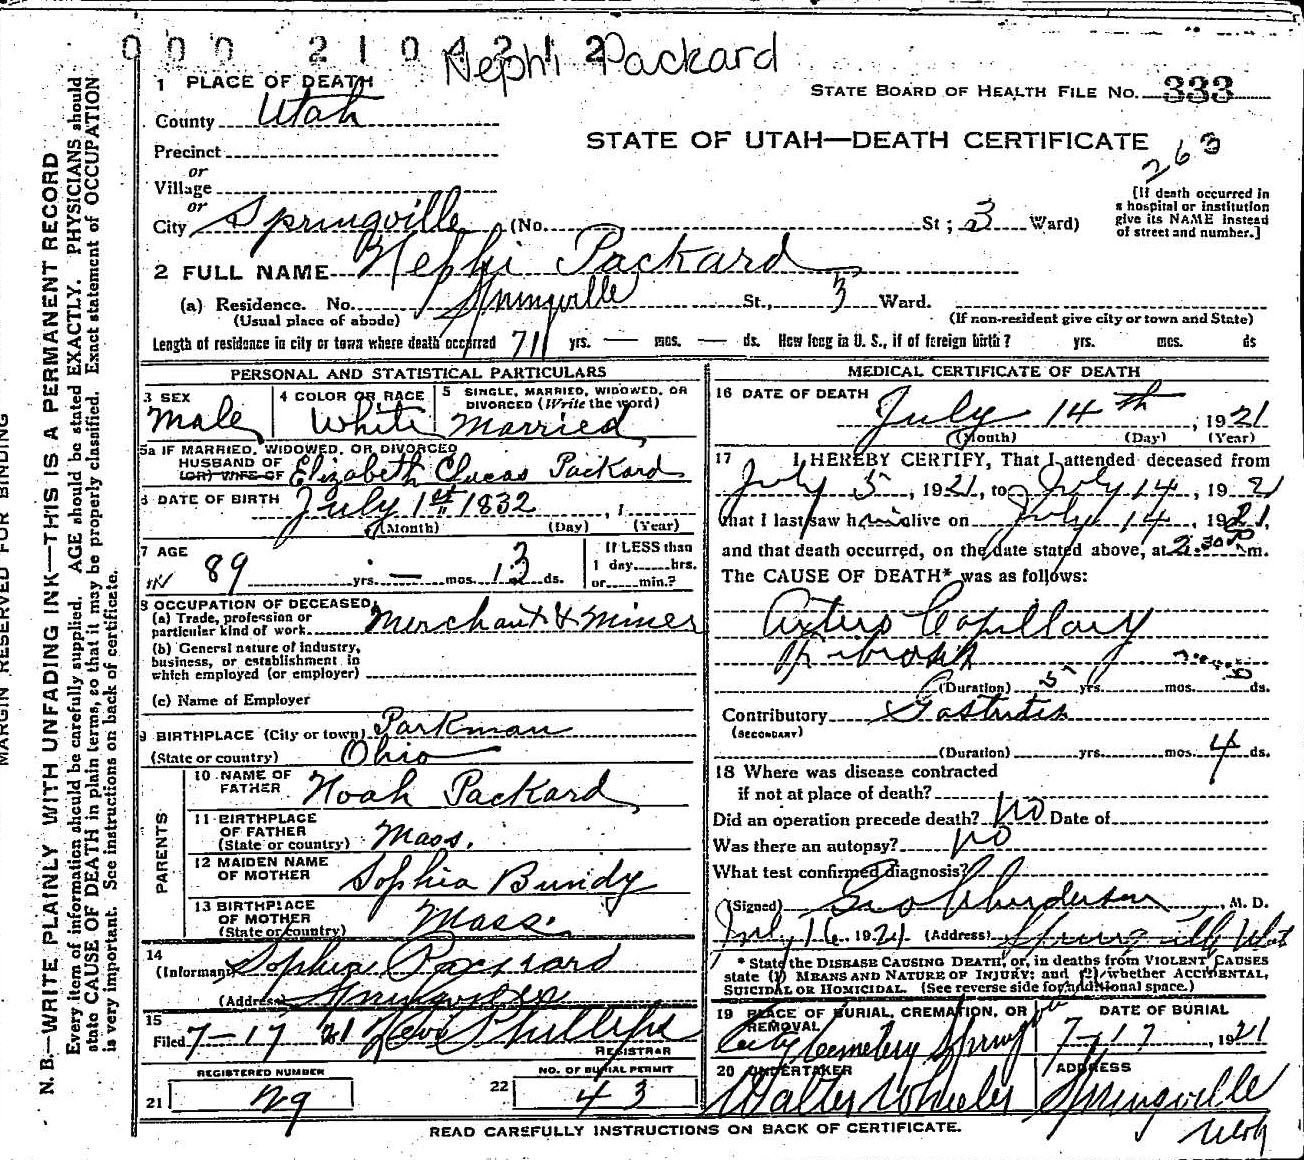 000 210 4212
Nephi Packard
1 PLACE OF DEATH
STATE BOARD OF HEALTH FILE NO. 333
County Utah
STATE OF UTAH—DEATH CERTIFICATE
263
Precinct
or
Village
or
City Springville (No. St; 3 Ward)
[If death occurred in
a hospital or institution
give its NAME instead
of street and number.]
2 FULL NAME Nephi Packard
(a) Residence. No. Springville St., 3 Ward.
(Usual place of abode) (If non-resident give city or town and State)
Length of residence in city or town where death occurred 71 yrs. — mos. — ds. How long in U. S., if of foreign birth? yrs. mos. ds
PERSONAL AND STATISTICAL PARTICULARS
3 SEX
Male
4 COLOR OR RACE
White
5 SINGLE, MARRIED, WIDOWED, OR
DIVORCED (Write the word)
Married
5a IF MARRIED, WIDOWED, OR DIVORCED
HUSBAND OF
(OR) WIFE OF Elizabeth Clucas Packard
6 DATE OF BIRTH July 1st 1832, 1
(Month) (Day) (Year)
7 AGE
89 yrs. — mos. 13 ds.
If LESS than
1 day hrs.
or min.?
8 OCCUPATION OF DECEASED
(a) Trade, profession or
particular kind of work Merchant & Miner
(b) General nature of Industry,
business, or establishment in
which employed (or employer)
(c) Name of Employer
9 BIRTHPLACE (City or town) Parkman
(State or country) Ohio
PARENTS
10 NAME OF
FATHER Noah Packard
11 BIRTHPLACE
OF FATHER
(State or country) Mass.
12 MAIDEN NAME
OF MOTHER Sophia Bundy
13 BIRTHPLACE
OF MOTHER
(State or country) Mass.
14
(Informant) Sophia Packard
(Address) Springville
15
Filed 7-17 21 Phillips
REGISTRAR
REGISTERED NUMBER
21 29
NO. OF BURIAL PERMIT
22 43
MEDICAL CERTIFICATE OF DEATH
16 DATE OF DEATH
July 14th, 1921
(Month) (Day) (Year)
17 I HEREBY CERTIFY, That I attended deceased from
July 5, 1921, to July 14, 1921
that I last saw him alive on July 14, 1921,
and that death occurred, on the date stated above, at 2:30 P m.
The CAUSE OF DEATH* was as follows:
Arterio Capillary
Fibrosis
(Duration) yrs. mos. ds.
Contributory Gastritis
(SECONDARY)
(Duration) yrs. mos. 4 ds.
18 Where was disease contracted
if not at place of death?
Did an operation precede death? No Date of
Was there an autopsy? No
What test confirmed diagnosis?
(Signed) Geo Anderson, M. D.
July 16, 1921 (Address) Springville Utah
* State the DISEASE CAUSING DEATH, or, in deaths from VIOLENT CAUSES
state (1) MEANS AND NATURE OF INJURY: and (2) whether ACCIDENTAL,
SUICIDAL OR HOMICIDAL. (See reverse side for additional space.)
19 PLACE OF BURIAL, CREMATION, OR
REMOVAL
City Cemetery Springville
DATE OF BURIAL
7-17, 1921
20 UNDERTAKER
Walter Wheeler
ADDRESS
Springville
Utah
READ CAREFULLY INSTRUCTIONS ON BACK OF CERTIFICATE.
MARGIN RESERVED FOR BINDING
N. B.—WRITE PLAINLY WITH UNFADING INK—THIS IS A PERMANENT RECORD
Every item of information should be carefully supplied. AGE should be stated EXACTLY. PHYSICIANS should
state CAUSE OF DEATH in plain terms, so that it may be properly classified. Exact statement of OCCUPATION
is very important. See instructions on back of certificate.